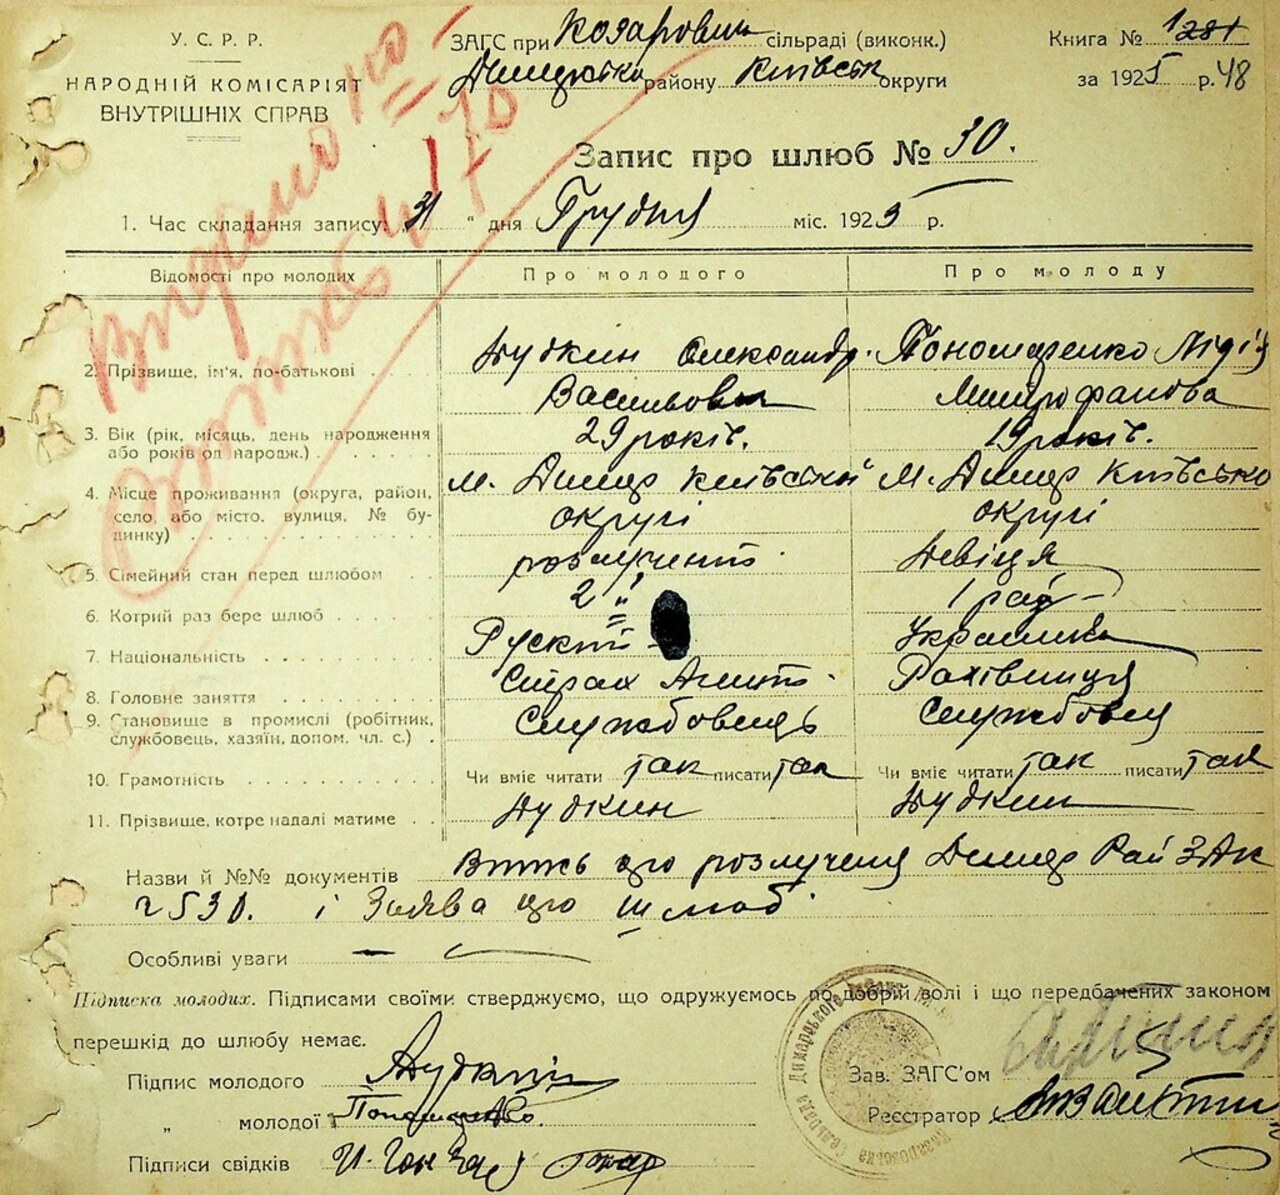 У. С. Р. Р.
НАРОДНІЙ КОМІСАРІЯТ
ВНУТРІШНІХ СПРАВ
ЗАГС при Козарович сільраді (виконк.)
Димерська району Київськ округи
Книга № 1
за 1925 р. 48
Видано
Запис про шлюб № 30.
1. Час складання запису: „31 " дня Грудня міс. 1925 р.
Відомості про молодих Про молодого Про молоду
2. Прізвище, ім'я, по-батькові Дудкин Олександр Васильович Пономаренко Лідія Митрофанова
3. Вік (рік, місяць, день народження або років од народж.) 29 років. 19 років.
4. Місце проживання (округа, район, село або місто, вулиця, № будинку) м. Димер Київської округі м. Димер Київсько округі
5. Сімейний стан перед шлюбом розлучений Девіця
6. Котрий раз бере шлюб 2 " 1 раз
7. Національність Руский Українка
8. Головне заняття Страх Агент Рахівниця
9. Становище в промислі (робітник, службовець, хазяїн, допом. чл. с.) Службовець Службовец
10. Грамотність Чи вміє читати так писати так Чи вміє читати так писати так
11. Прізвище, котре надалі матиме Дудкин Дудкин
Назви й №№ документів про розлученя Димер Рай ЗАГС
530. і Заява про шлюб
Особливі уваги —
Підписка молодих. Підписами своїми стверджуємо, що одружуємось по добрій волі і що передбачених законом
перешкід до шлюбу немає.
Підпис молодого Дудкин
Зав. ЗАГС'ом
„ молодої Пономаренко.
Реєстратор
Підписи свідків И. Гончар